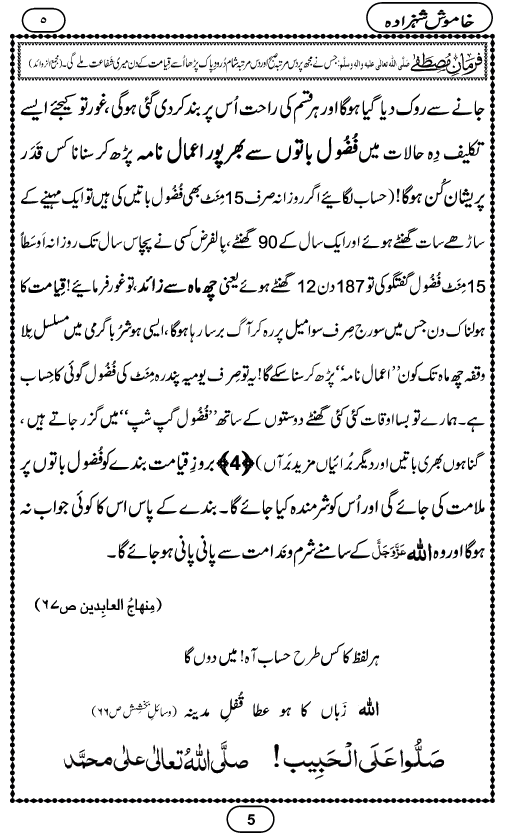 خاموش شہزادہ
٥
فرمانِ مصطفٰے صلَّی اللہ تعالیٰ علیہ واٰلہٖ وسلَّم: جس نے مجھ پر دس مرتبہ صبح اور دس مرتبہ شام دُرود پاک پڑھا اُسے قیامت کے دن میری شفاعت ملے گی۔ (مجمع الزوائد)
جانے سے روک دیا گیا ہوگا اور ہر قسم کی راحت اُس پر بند کر دی گئی ہوگی، غور تو کیجئے ایسے
تکلیف دِہ حالات میں فُضُول باتوں سے بھرپور اعمال نامہ پڑھ کر سنانا کس قَدَر
پریشان کُن ہوگا! (حساب لگائیے اگر روزانہ صرف 15 مِنَٹ بھی فُضُول باتیں کی ہیں تو ایک مہینے کے
ساڑھے سات گھنٹے ہوئے اور ایک سال کے 90 گھنٹے، بِالفرض کسی نے پچاس سال تک روزانہ اَوسَطاً
15 مِنَٹ فُضُول گفتگو کی تو 187 دن 12 گھنٹے ہوئے یعنی چھ ماہ سے زائد، تو غور فرمائیے! قِیامت کا
ہولناک دن جس میں سورج صِرف سوا میل پر رہ کر آگ برسا رہا ہوگا، ایسی ہوشرُبا گرمی میں مسلسل بِلا
وقفہ چھ ماہ تک کون ’’اعمال نامہ‘‘ پڑھ کر سنا سکے گا! یہ تو صِرف یومیہ پندرہ مِنَٹ کی فُضُول گوئی کا حِساب
ہے۔ ہمارے تو بسا اوقات کئی کئی گھنٹے دوستوں کے ساتھ ’’فُضُول گپ شپ‘‘ میں گزر جاتے ہیں،
گناہوں بھری باتیں اور دیگر بُرائیاں مزید بَرآں) ﴿4﴾ بروزِ قیامت بندے کو فُضُول باتوں پر
ملامت کی جائے گی اور اُس کو شرمندہ کیا جائے گا۔ بندے کے پاس اس کا کوئی جواب نہ
ہوگا اور وہ اللہ عَزَّوَجَلَّ کے سامنے شرم و نَدامت سے پانی پانی ہو جائے گا۔
(مِنہاجُ العابِدین ص٦٧)
ہر لفظ کا کس طرح حساب آہ! میں دوں گا
اللہ زَباں کا ہو عطا قُفلِ مدینہ (وسائلِ بخشش ص٦٦)
صَلُّوا عَلَی الْحَبِیب! صلَّی اللہُ تعالیٰ علیٰ محمَّد
5